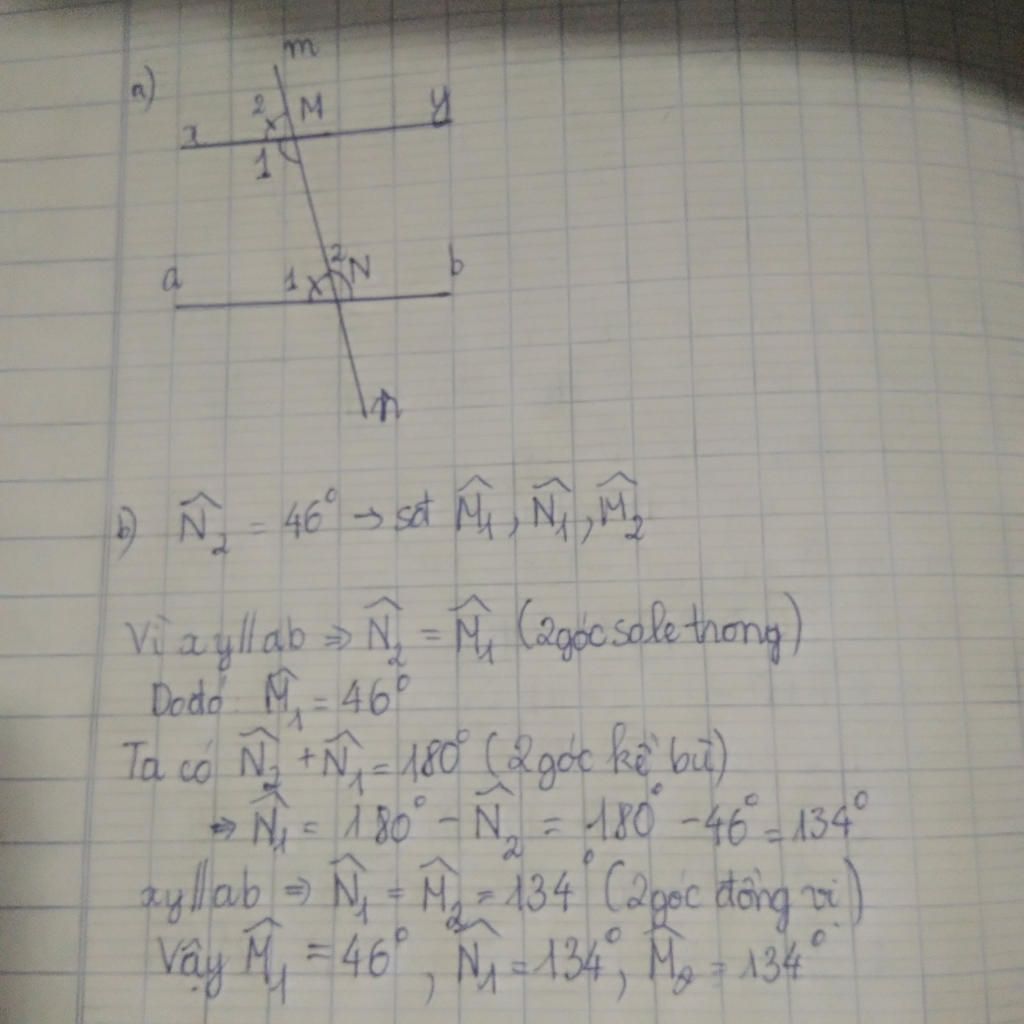 m
a)
2 M y
x
1
a 1 2 N b
n
b) N̂₂ = 46° → sđ M̂₁, N̂₁, M̂₂
Vì xy // ab ⇒ N̂₂ = M̂₁ (2 góc sole trong)
Do đó M̂₁ = 46°
Ta có N̂₂ + N̂₁ = 180° (2 góc kề bù)
⇒ N̂₁ = 180° - N̂₂ = 180° - 46° = 134°
xy // ab ⇒ N̂₁ = M̂₂ = 134° (2 góc đồng vị)
Vậy M̂₁ = 46°, N̂₁ = 134°, M̂₂ = 134°